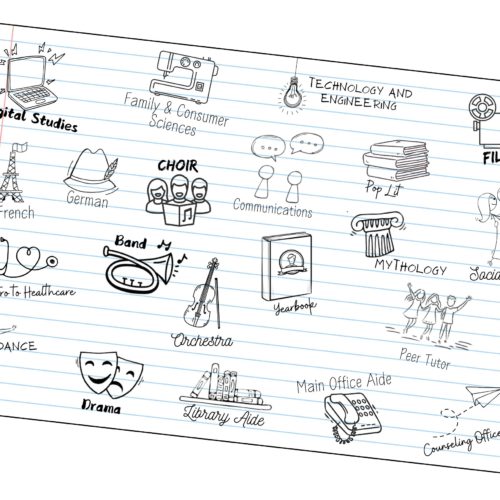 Family & Consumer
Sciences
TECHNOLOGY AND
ENGINEERING
gital Studies
FIL
CHOIR
German
French
Communications
Pop Lit
Band
MYTHOLOGY
Social
ro to Healthcare
Yearbook
Orchestra
DANCE
Peer Tutor
Main Office Aide
Drama
Library Aide
Counseling Office